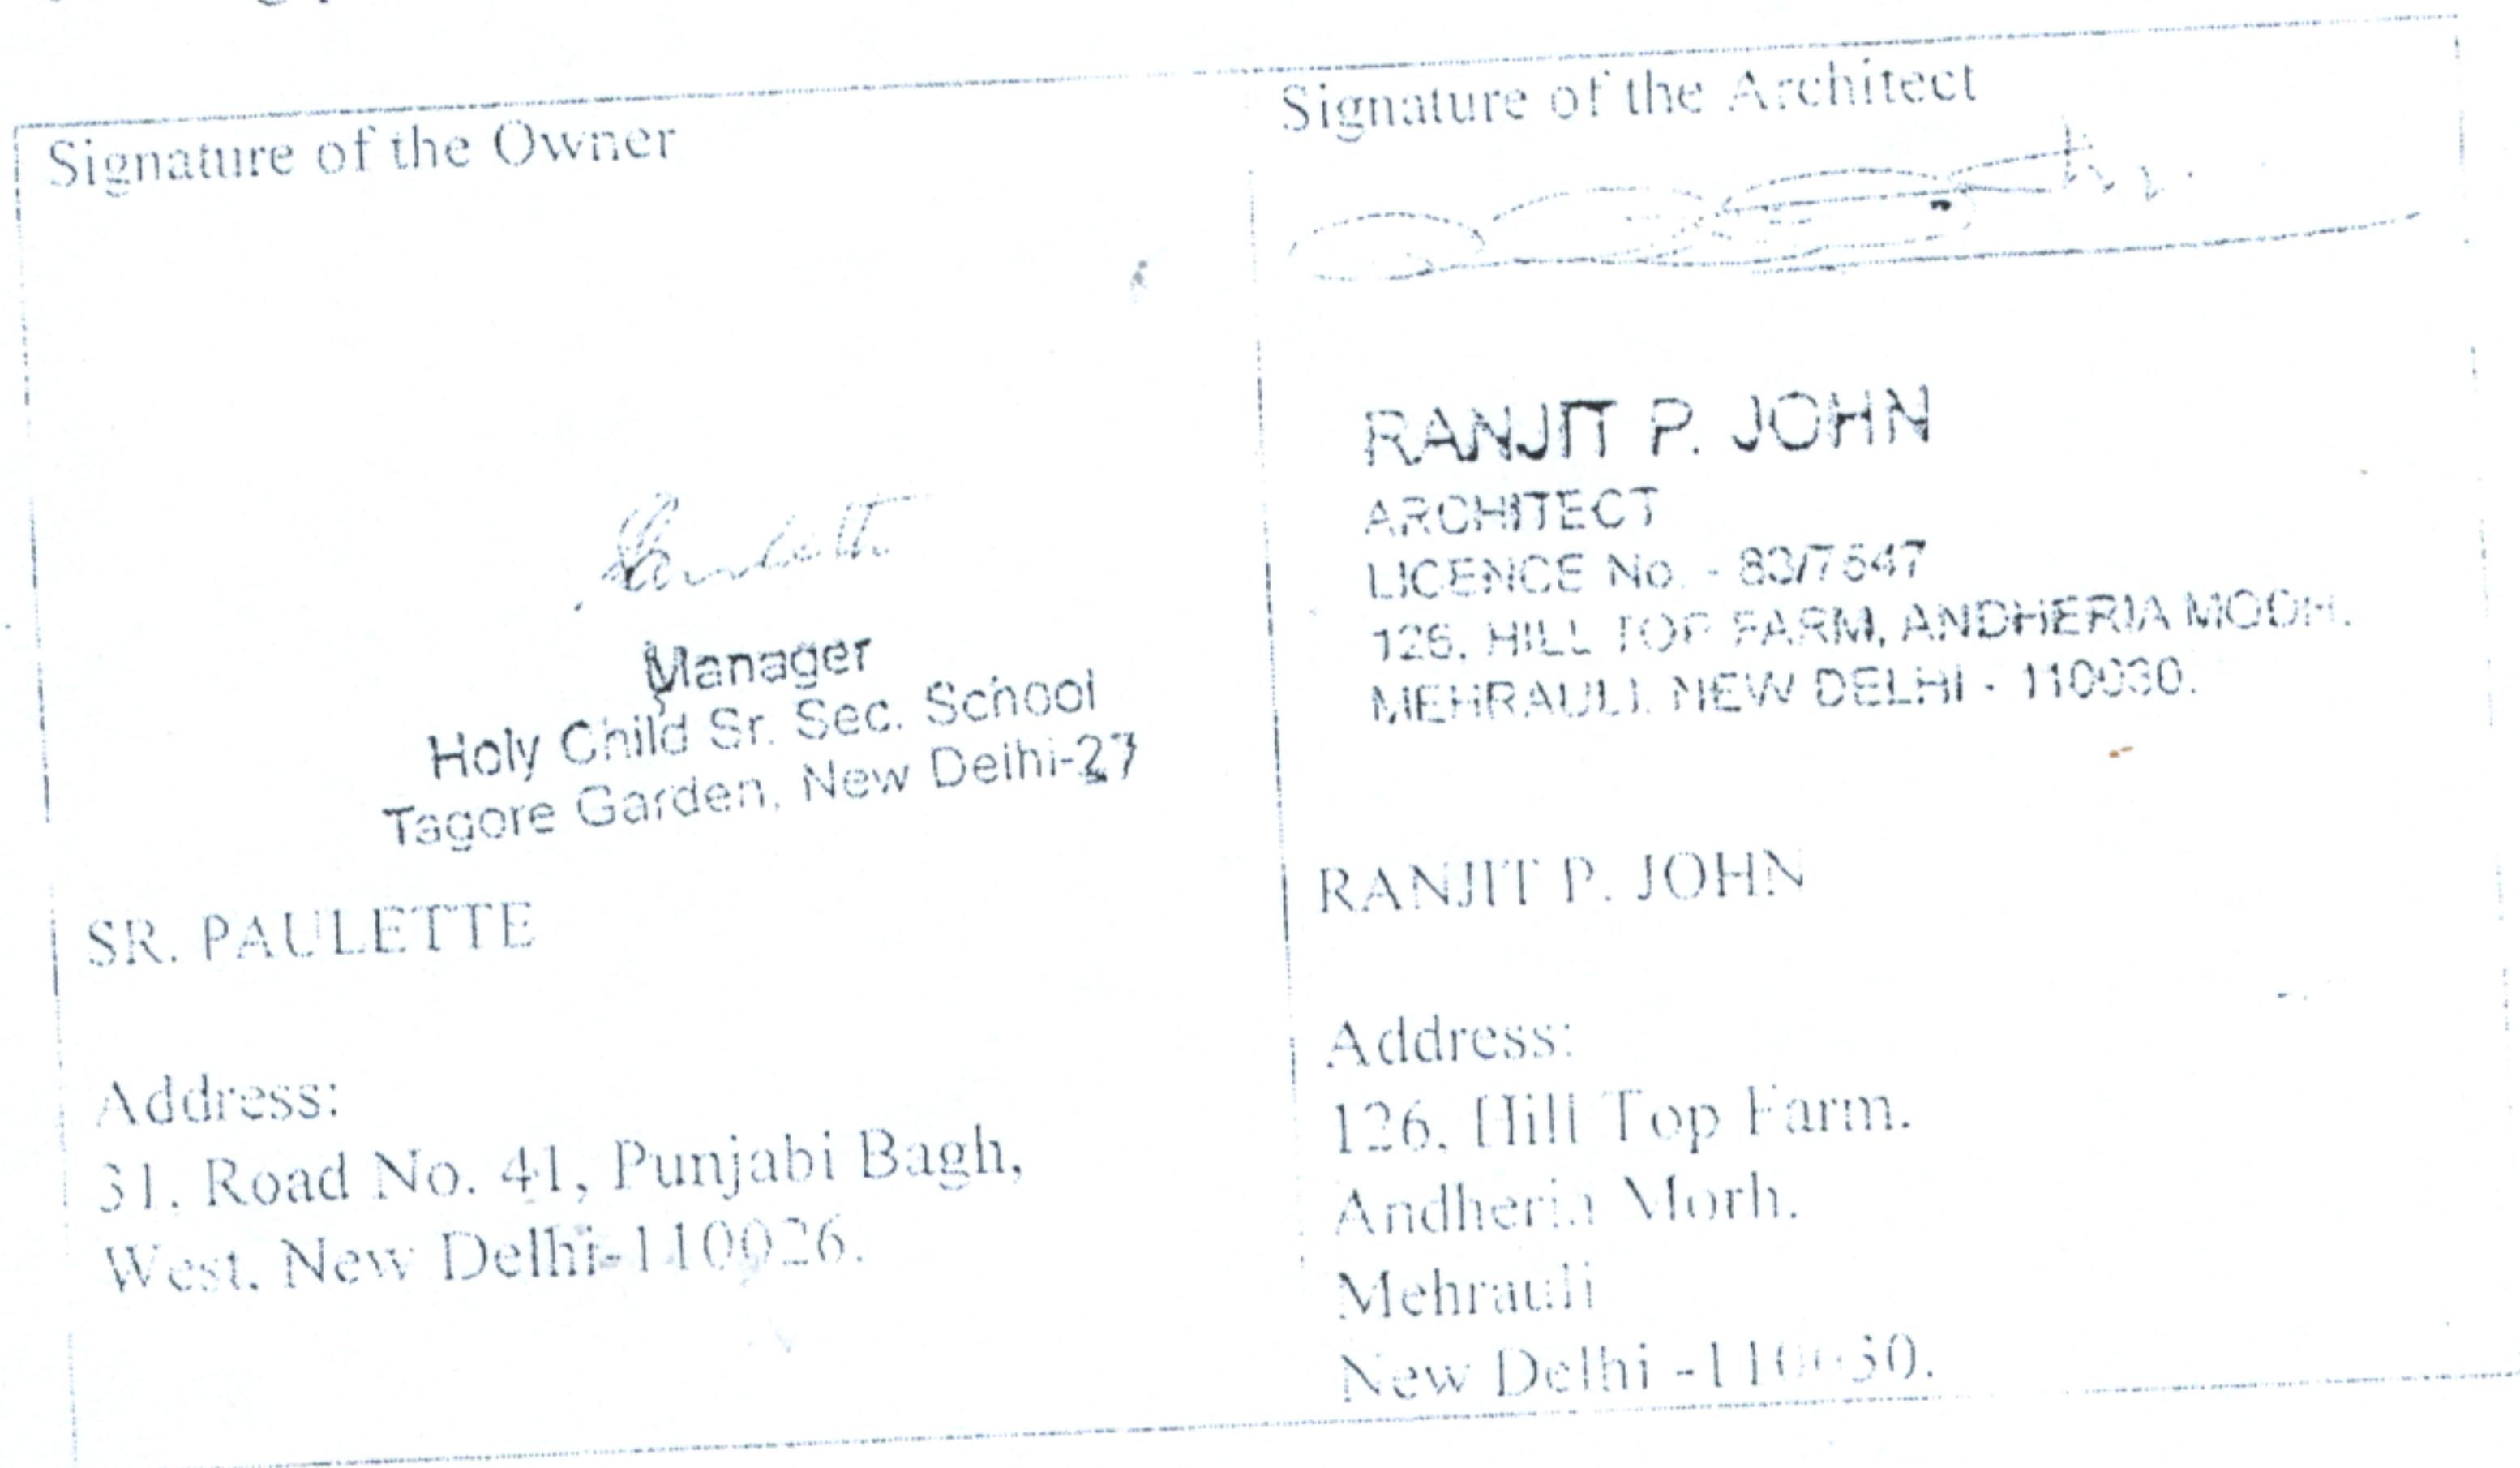 Signature of the Owner
Paulette
Manager
Holy Child Sr. Sec. School
Tagore Garden, New Delhi-27
SR. PAULETTE
Address:
31, Road No. 41, Punjabi Bagh,
West, New Delhi-110026.
Signature of the Architect
RANJIT P. JOHN
ARCHITECT
LICENCE No. - 83/7547
126, HILL TOP FARM, ANDHERIA MODH,
MEHRAULI, NEW DELHI - 110030.
RANJIT P. JOHN
Address:
126, Hill Top Farm,
Andheria Morh,
Mehrauli
New Delhi -110030.